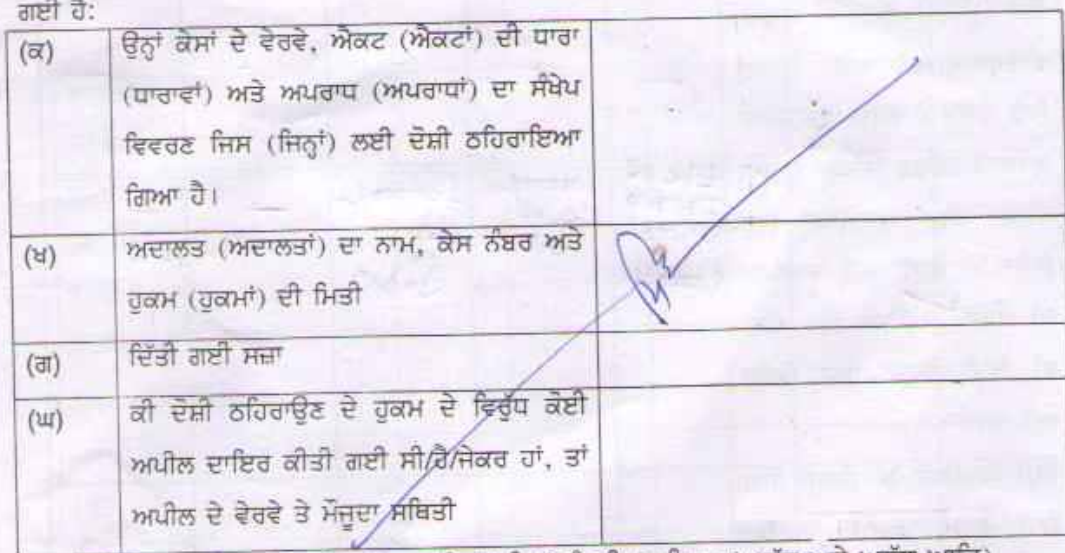 ਗਈ ਹੈ:
(ਕ) ਉਨ੍ਹਾਂ ਕੇਸਾਂ ਦੇ ਵੇਰਵੇ, ਐਕਟ (ਐਕਟਾਂ) ਦੀ ਧਾਰਾ
(ਧਾਰਾਵਾਂ) ਅਤੇ ਅਪਰਾਧ (ਅਪਰਾਧਾਂ) ਦਾ ਸੰਖੇਪ
ਵਿਵਰਣ ਜਿਸ (ਜਿਨ੍ਹਾਂ) ਲਈ ਦੋਸ਼ੀ ਠਹਿਰਾਇਆ
ਗਿਆ ਹੈ।
(ਖ) ਅਦਾਲਤ (ਅਦਾਲਤਾਂ) ਦਾ ਨਾਮ, ਕੇਸ ਨੰਬਰ ਅਤੇ
ਹੁਕਮ (ਹੁਕਮਾਂ) ਦੀ ਮਿਤੀ
(ਗ) ਦਿੱਤੀ ਗਈ ਸਜ਼ਾ
(ਘ) ਕੀ ਦੋਸ਼ੀ ਠਹਿਰਾਉਣ ਦੇ ਹੁਕਮ ਦੇ ਵਿਰੁੱਧ ਕੋਈ
ਅਪੀਲ ਦਾਇਰ ਕੀਤੀ ਗਈ ਸੀ/ਹੈ/ਜੇਕਰ ਹਾਂ, ਤਾਂ
ਅਪੀਲ ਦੇ ਵੇਰਵੇ ਤੇ ਮੌਜੂਦਾ ਸਥਿਤੀ